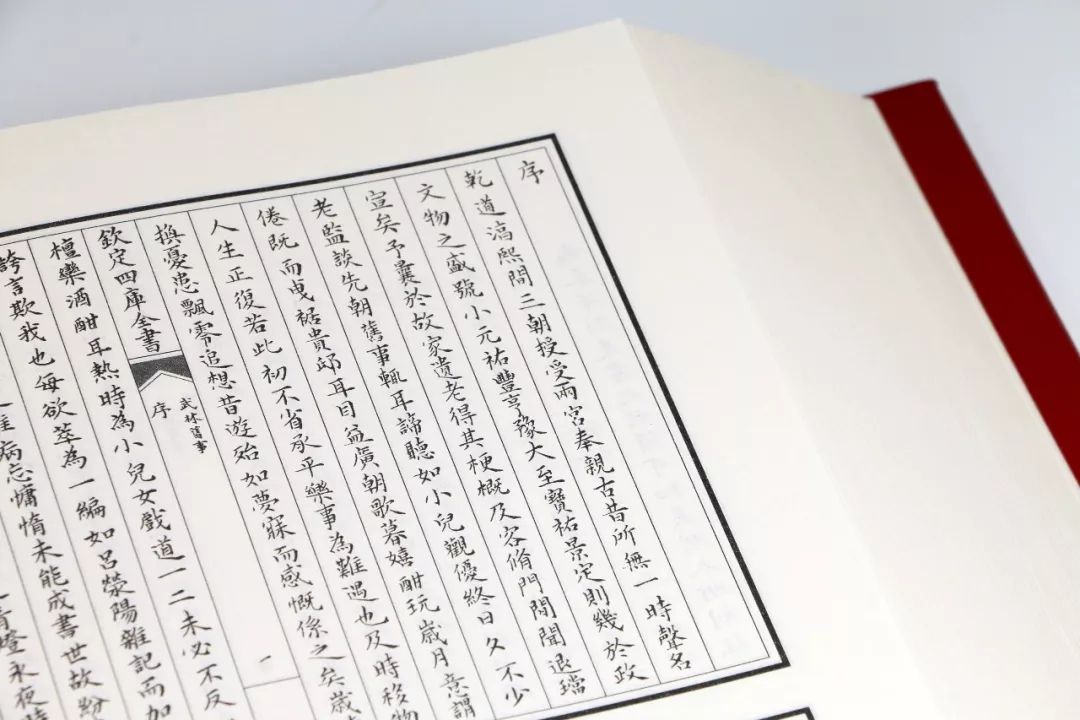 序
乾道湻熙間三朝授受兩宮奉親古昔所無一時聲名
文物之盛號小元祐豐亨豫大至寶祐景定則幾於政
宣矣予曩於故家遺老得其梗概及客脩門閒聞退璫
老監談先朝舊事輒耳諦聽如小兒觀優終日夕不少
倦既而曳裾貴邸耳目益廣朝歌暮嬉酣玩歲月意謂
人生正復若此初不省承平樂事為難遇也及時移物
換憂患飄零追想昔遊殆如夢寐而感慨係之矣歲
欽定四庫全書
武林舊事
序
一
檀欒酒酣耳熱時為小兒女戲道一二未必不反
誇言欺我也每欲萃為一編如呂滎陽雜記而加
病忘慵惰未能成書世故紛
青燈永夜時